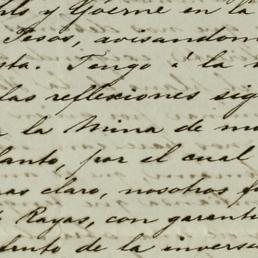 y Goerne en la
Pesos, avisandom
sta. Tengo á la
las reflexiones sig
a la Mina de m
lanto, por el cual
mas claro, nosotros
Rayas, con garanti
fruto de la invers